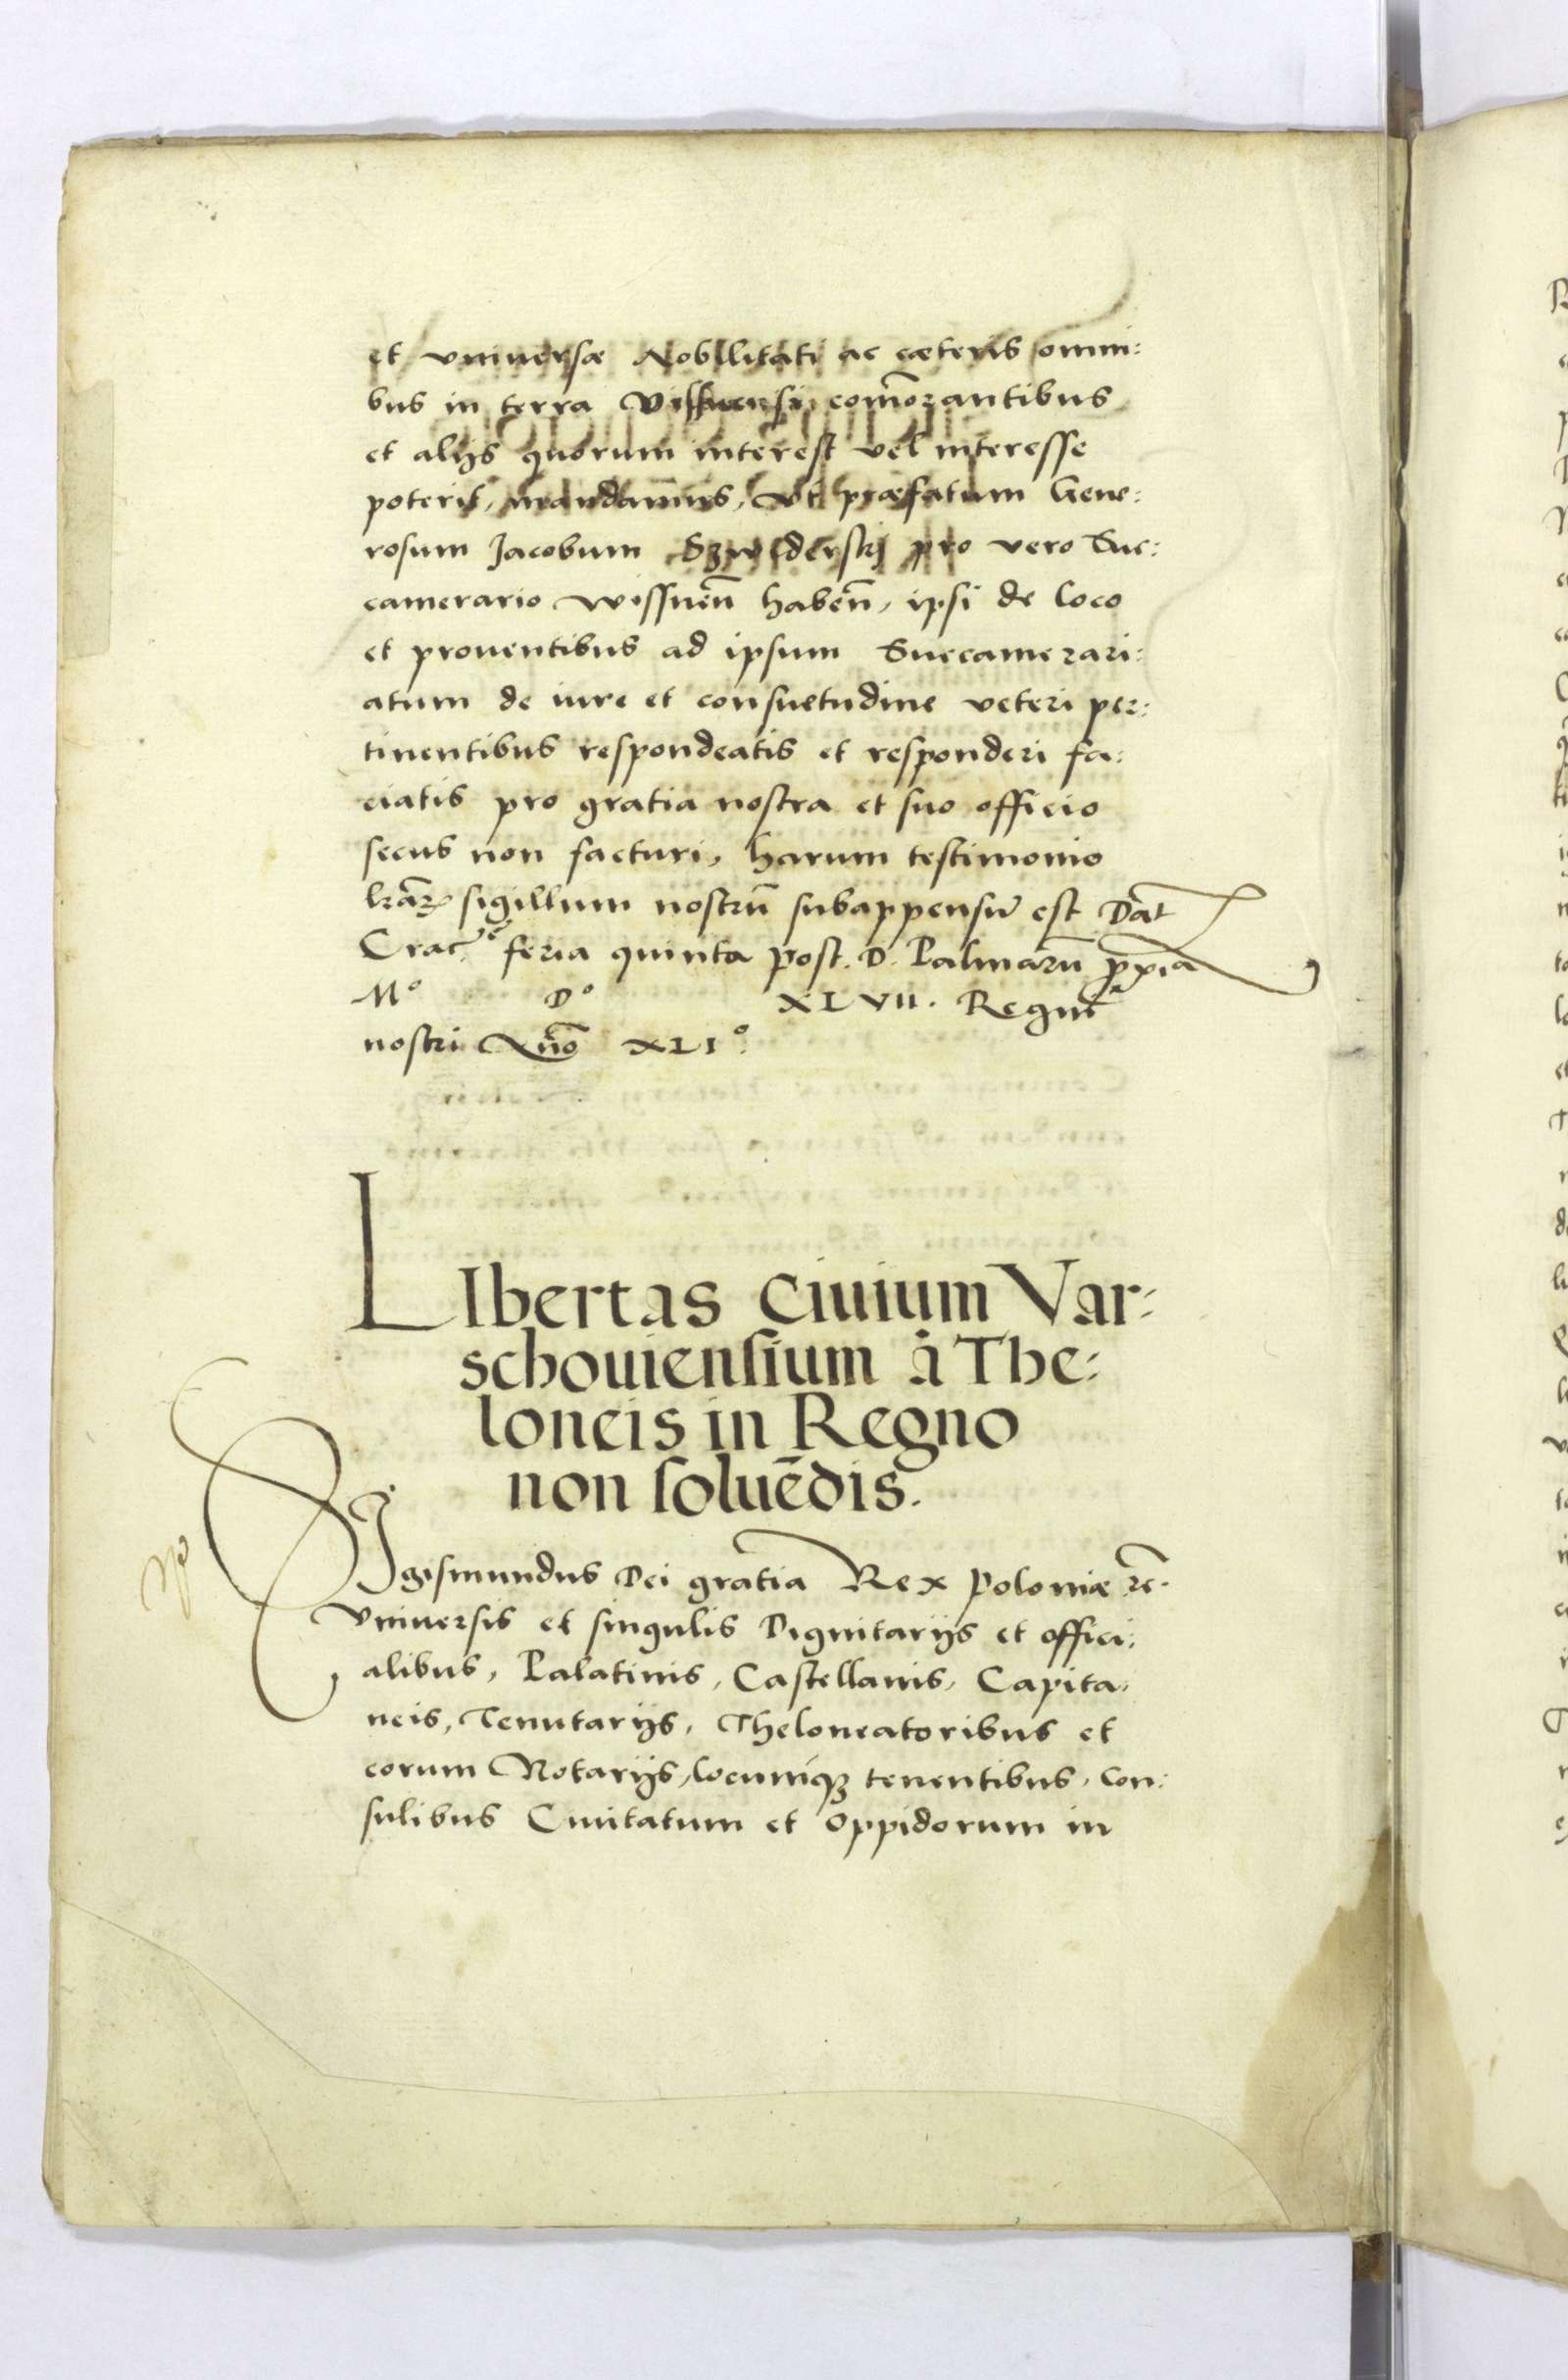 et vniuersæ Nobilitati ac cæteris omni:
bus in terra Vissnensi com̄orantibus
et alijs quorum interest vel interesse
poterit, mandamus, vt præfatum Gene:
rosum Jacobum pro vero Suc:
camerario Wissnen̄ haben̄, ipsi de loco
et prouentibus ad ipsum Succamerari:
atum de iure et consuetudine veteri per:
tinentibus respondeatis et responderi fa:
ciatis pro gratia nostra et suo officio
secus non facturi, harum testimonio
lrāꝝ sigillum nostrū subappensū est Dat
Crac. feria quinta post. D. Palmarū ꝓxīa
Mº Dº XLVII. Regni
nostri An̄o XLIº.
LIbertas Ciuium Var:
schouiensium à The:
loneis in Regno
non soluēdis.
SIgismundus Dei gratia Rex Poloniæ ꝛc̄.
Vniuersis et singulis Dignitarijs et offici:
alibus, Palatinis, Castellanis, Capita,
neis, Tenutarijs, Theloneatoribus et
eorum Notarijs, locumqꝫ tenentibus, Con:
sulibus Ciuitatum et Oppidorum in